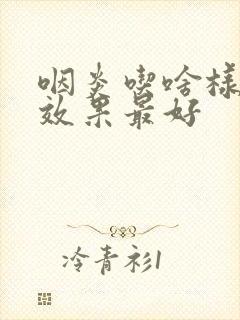 咽炎喫啥样
效果最好
冷青衫1